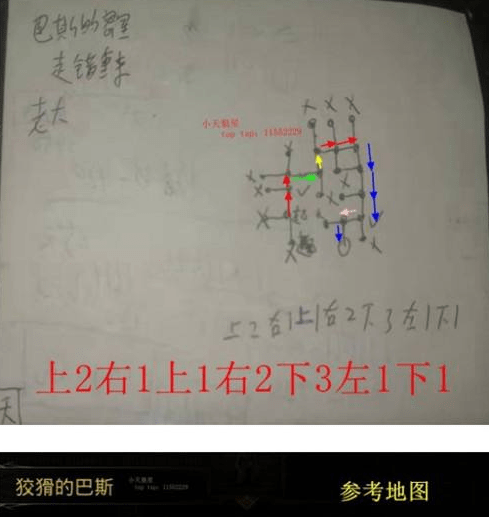 巴斯的密室
走错重来
老大
小天魁星
tap tap: 11552229
起
上2右1上1右2下3左1下1
上2右1上1右2下3左1下1
天
狡猾的巴斯
小天魁星
tap tap: 11552229
参考地图